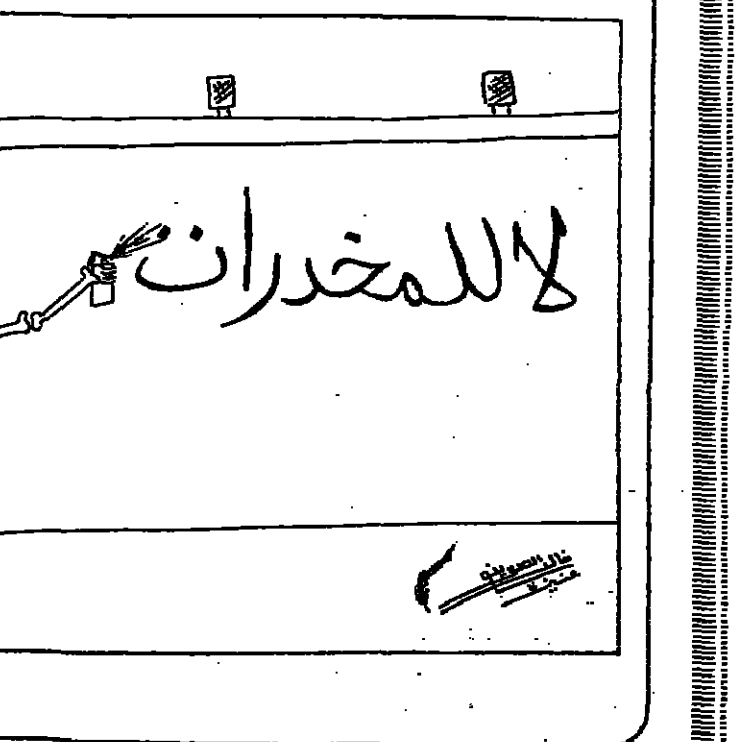 لا للمخدرات
خالد الصوينع
عنيزة